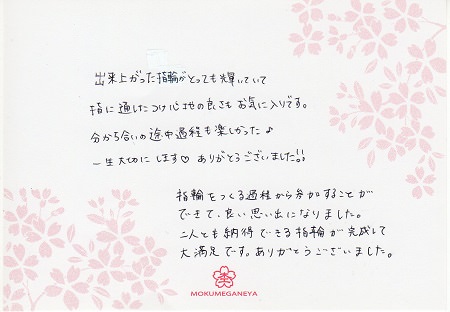 出来上がった指輪がとっても輝いていて
指に通したつけ心地の良さもお気に入りです。
分かち合いの途中過程も楽しかった♪
一生大切にします♡ ありがとうございました!!
指輪をつくる過程から参加することが
できて、良い思い出になりました。
二人とも納得できる指輪が完成して
大満足です。ありがとうございました。
MOKUMEGANEYA